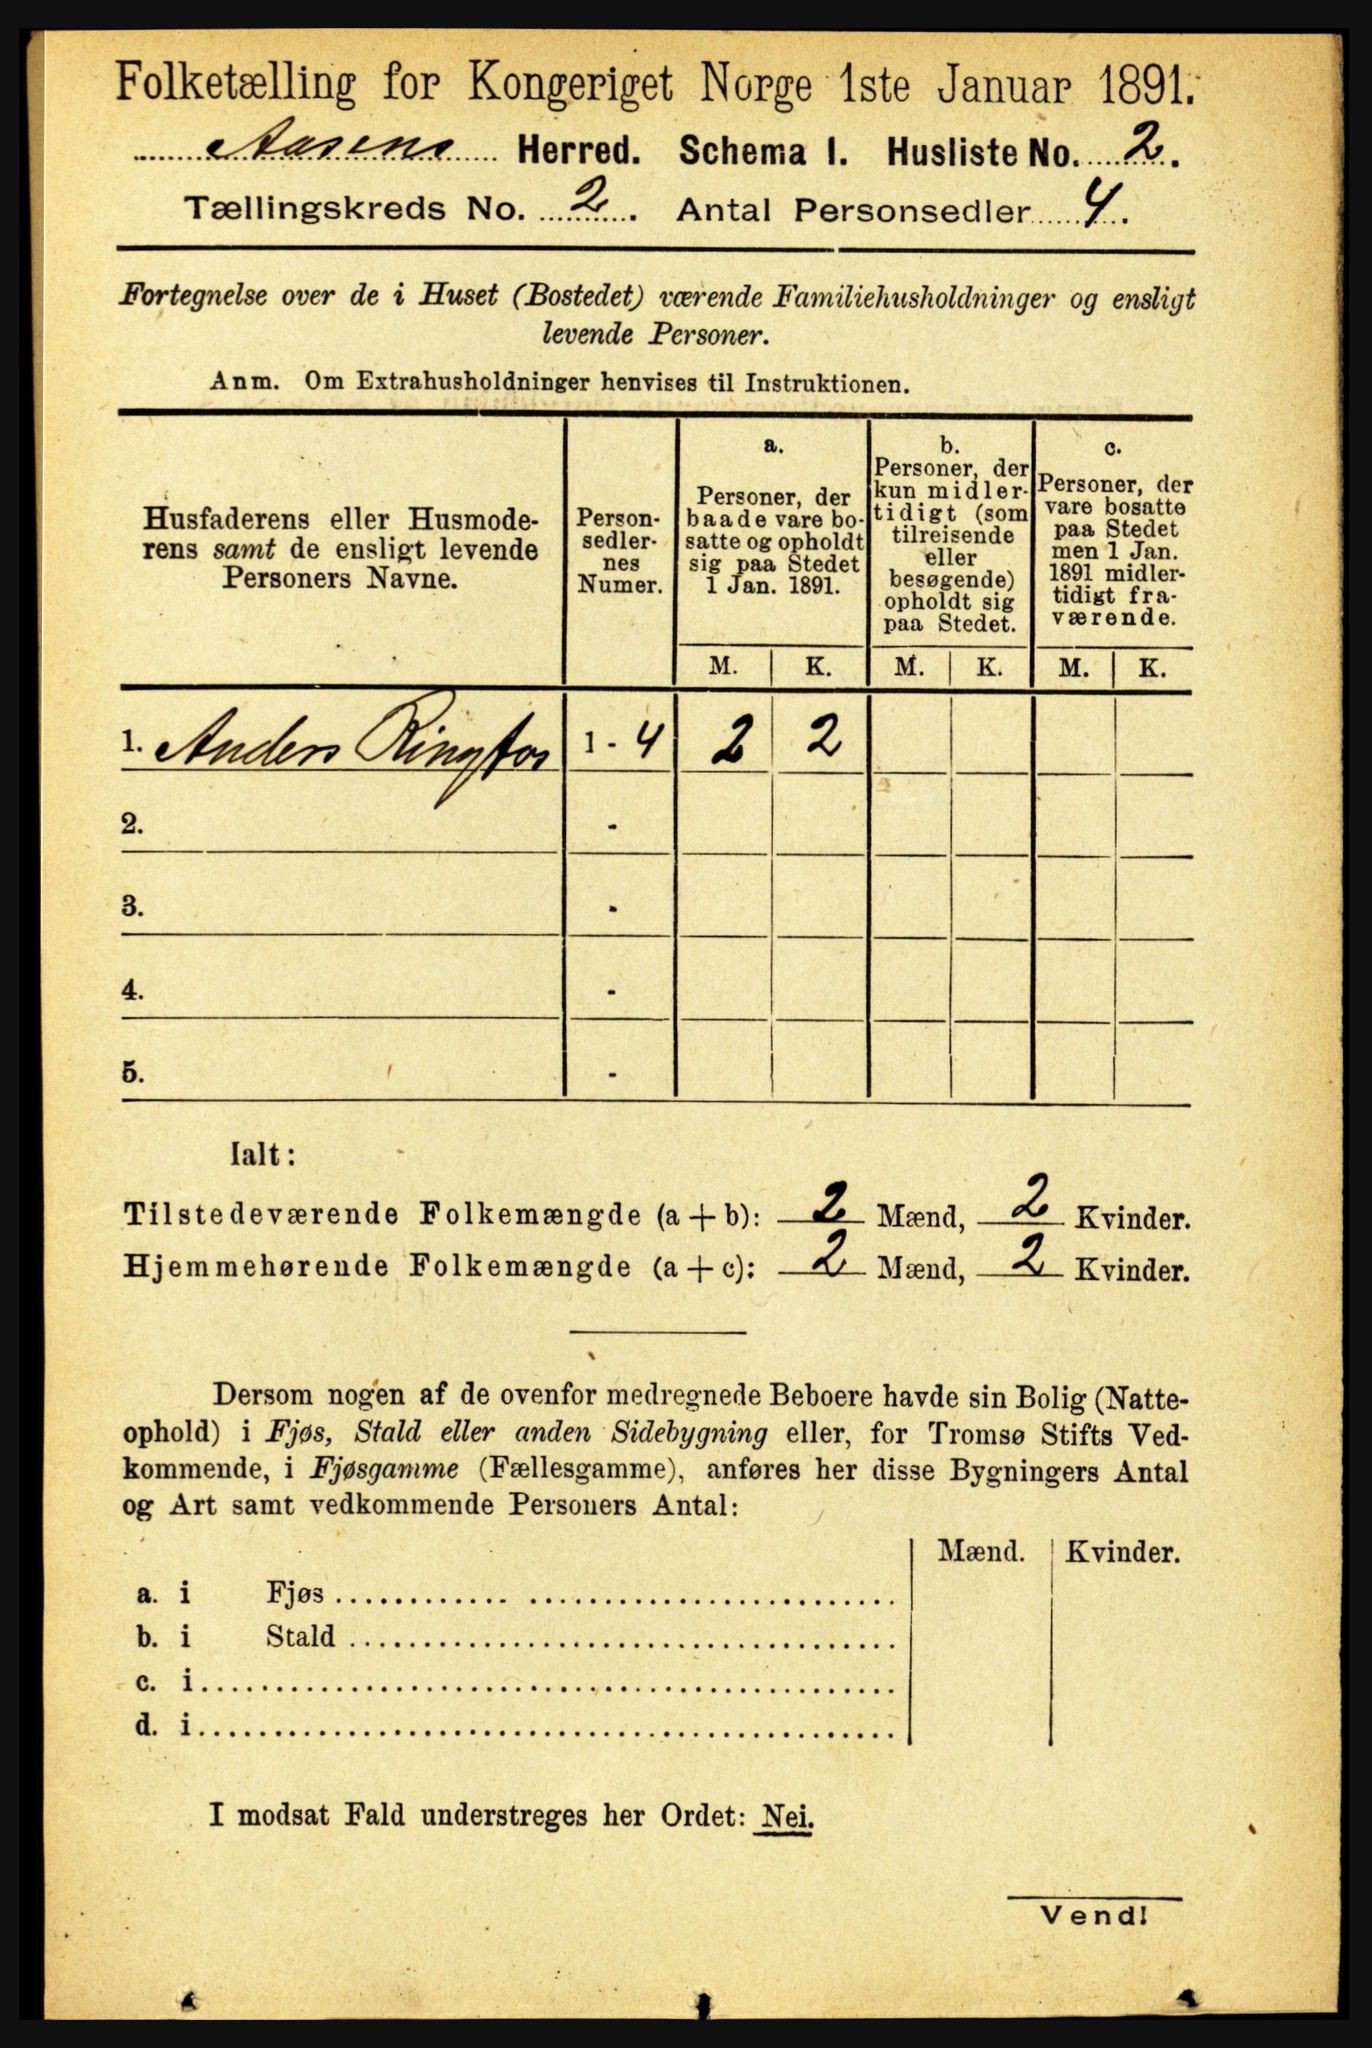 Folketælling for Kongeriget Norge 1ste Januar 1891.
Aasens Herred. Schema I. Husliste No. 2.
Tællingskreds No. 2. Antal Personsedler 4.
Fortegnelse over de i Huset (Bostedet) værende Familiehusholdninger og ensligt
levende Personer.
Anm. Om Extrahusholdninger henvises til Instruktionen.
Husfaderens eller Husmode-
rens samt de ensligt levende
Personers Navne.
Person-
sedler-
nes
Numer.
a.
Personer, der
baade vare bo-
satte og opholdt
sig paa Stedet
1 Jan. 1891.
b.
Personer, der
kun midler-
tidigt (som
tilreisende
eller
besøgende)
opholdt sig
paa Stedet.
c.
Personer, der
vare bosatte
paa Stedet
men 1 Jan.
1891 midler-
tidigt fra-
værende.
M. K. M. K. M. K.
1. Anders Ringfos 1 - 4 2 2
2. -
3. -
4. -
5. -
Ialt:
Tilstedeværende Folkemængde (a + b): 2 Mænd, 2 Kvinder.
Hjemmehørende Folkemængde (a + c): 2 Mænd, 2 Kvinder.
Dersom nogen af de ovenfor medregnede Beboere havde sin Bolig (Natte-
ophold) i Fjøs, Stald eller anden Sidebygning eller, for Tromsø Stifts Ved-
kommende, i Fjøsgamme (Fællesgamme), anføres her disse Bygningers Antal
og Art samt vedkommende Personers Antal:
Mænd. Kvinder.
a. i Fjøs
b. i Stald
c. i
d. i
I modsat Fald understreges her Ordet: Nei.
Vend!